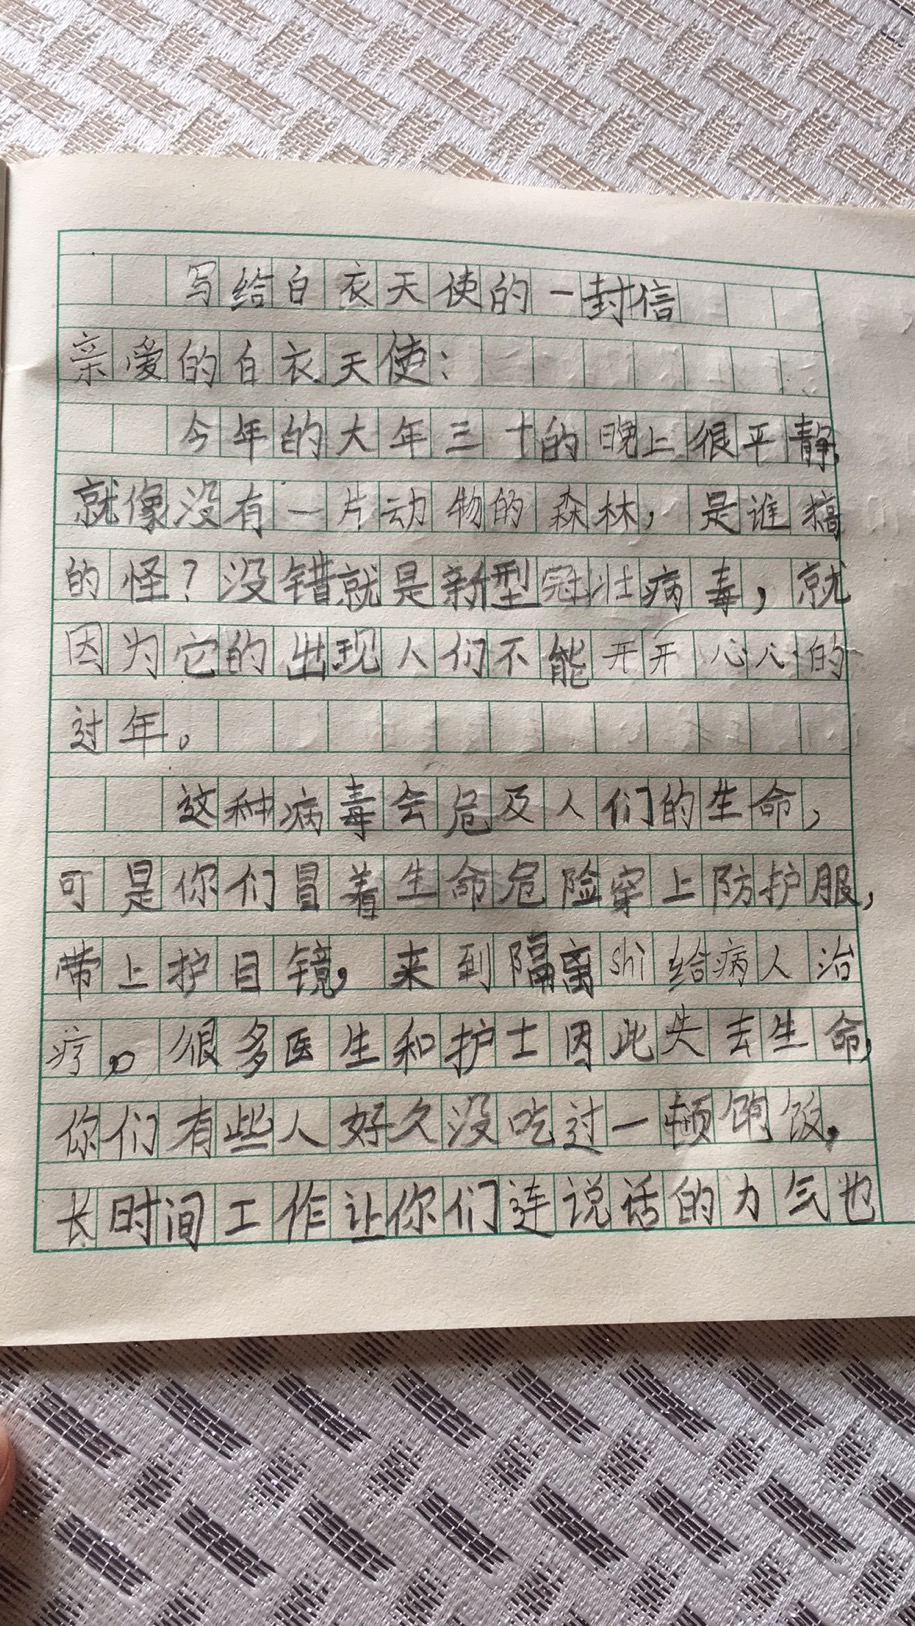 写给白衣天使的一封信
亲爱的白衣天使：
今年的大年三十的晚上很平静，
就像没有一片动物的森林，是谁搞
的怪？没错就是新型冠壮病毒，就
因为它的出现人们不能开开心心的
过年。
这种病毒会危及人们的生命，
可是你们冒着生命危险穿上防护服，
带上护目镜，来到隔离shi给病人治
疗。很多医生和护士因此失去生命，
你们有些人好久没吃过一顿饱饭，
长时间工作让你们连说话的力气也